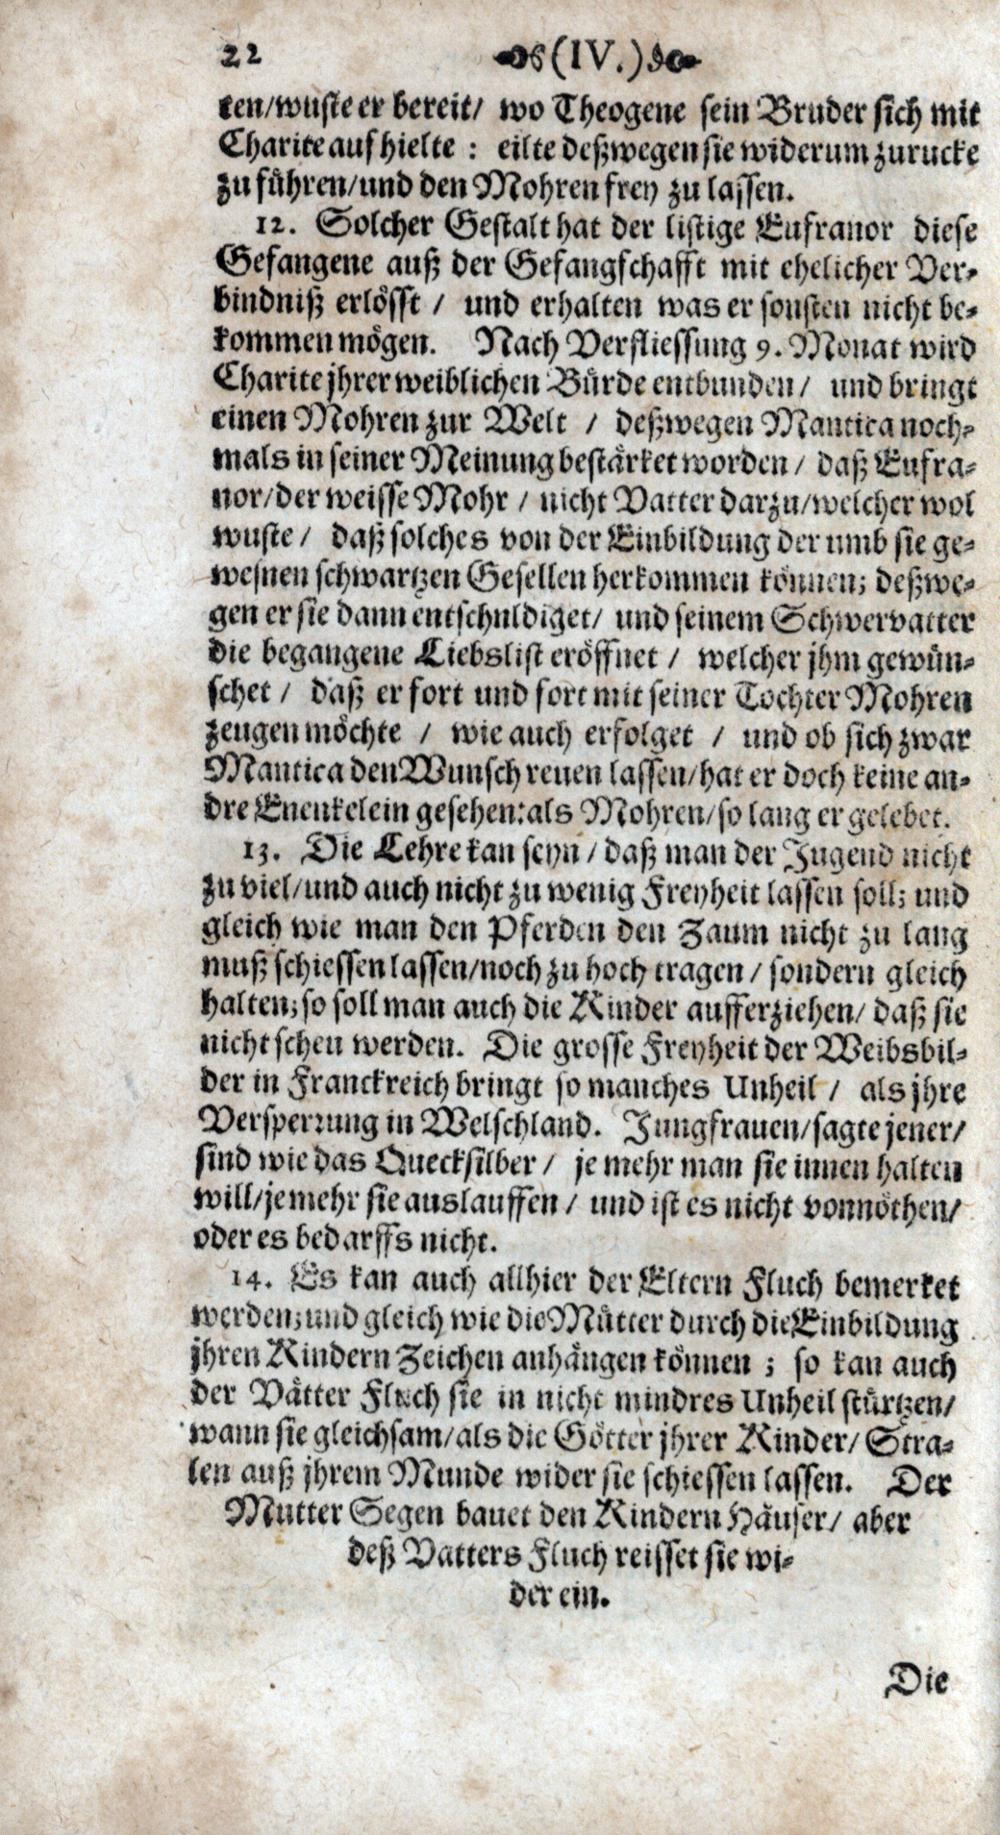 22 (IV.)
ten/wuste er bereit/ wo Theogene sein Bruder sich mit
Charite auf hielte : eilte deßwegen sie widerum zurucke
zu führen/und den Mohren frey zu lassen.
12. Solcher Gestalt hat der listige Eufranor diese
Gefangene auß der Gefangschafft mit ehelicher Ver-
bindniß erlösst / und erhalten was er sonsten nicht be-
kommen mögen. Nach Verfliessung 9. Monat wird
Charite jhrer weiblichen Bürde entbunden/ und bringt
einen Mohren zur Welt / deßwegen Mantica noch-
mals in seiner Meinung bestärket worden/ daß Eufra-
nor/der weisse Mohr / nicht Vatter darzu/welcher wol
wuste/ daß solches von der Einbildung der umb sie ge-
wesnen schwartzen Gesellen herkommen können; deßwe-
gen er sie dann entschuldiget/ und seinem Schwervatter
die begangene Liebslist eröffnet / welcher jhm gewün-
schet / daß er fort und fort mit seiner Tochter Mohren
zeugen möchte / wie auch erfolget / und ob sich zwar
Mantica den Wunsch reuen lassen/hat er doch keine an-
dre Enenkelein gesehen: als Mohren/so lang er gelebet.
13. Die Lehre kan seyn/ daß man der Jugend nicht
zu viel/und auch nicht zu wenig Freyheit lassen soll; und
gleich wie man den Pferden den Zaum nicht zu lang
muß schiessen lassen/noch zu hoch tragen/ sondern gleich
halten; so soll man auch die Kinder aufferziehen/ daß sie
nicht scheu werden. Die grosse Freyheit der Weibsbil-
der in Franckreich bringt so manches Unheil / als jhre
Versperrung in Welschland. Jungfrauen/sagte jener/
sind wie das Quecksilber / je mehr man sie innen halten
will/je mehr sie auslauffen / und ist es nicht vonnöthen/
oder es bedarffs nicht.
14. Es kan auch allhier der Eltern Fluch bemerket
werden; und gleich wie die Mütter durch die Einbildung
jhren Kindern Zeichen anhängen können ; so kan auch
der Vätter Fluch sie in nicht mindres Unheil stürtzen/
wann sie gleichsam/als die Götter jhrer Kinder/ Stra-
len auß jhrem Munde wider sie schiessen lassen. Der
Mutter Segen bauet den Kindern Häuser/ aber
deß Vatters Fluch reisset sie wi-
der ein.
Die